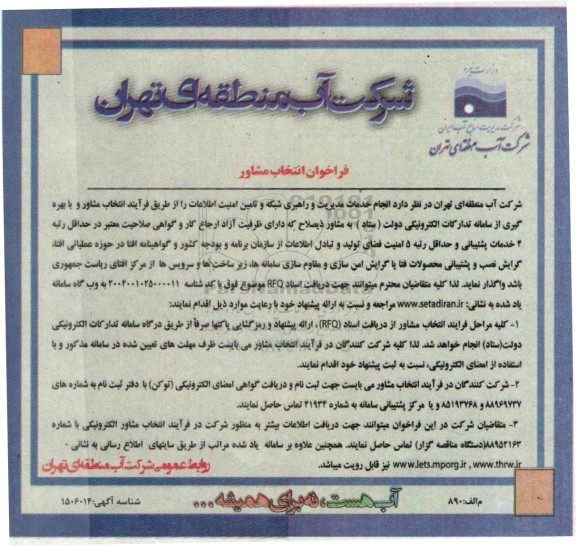 وزارت نیرو
شرکت مدیریت منابع آب ایران
شرکت آب منطقه‌ای تهران
شرکت آب منطقه‌ای تهران
فراخوان انتخاب مشاور
شرکت آب منطقه ای تهران در نظر دارد انجام خدمات مدیریت و راهبری شبکه و تامین امنیت اطلاعات را از طریق فرآیند انتخاب مشاور و با بهره
گیری از سامانه تدارکات الکترونیکی دولت ( ستاد ) به مشاور ذیصلاح که دارای ظرفیت آزاد ارجاع کار و گواهی صلاحیت معتبر در حداقل رتبه
۴ خدمات پشتیبانی و حداقل رتبه ۵ امنیت فضای تولید و تبادل اطلاعات از سازمان برنامه و بودجه کشور و گواهینامه افتا در حوزه عملیاتی افتا،
گرایش نصب و پشتیبانی محصولات فتا یا گرایش امن سازی و مقاوم سازی سامانه ها، زیر ساخت‌ها و سرویس ها از مرکز افتای ریاست جمهوری
باشد واگذار نماید. لذا کلیه متقاضیان محترم میتوانند جهت دریافت اسناد RFQ موضوع فوق با کد شناسه ۲۰۰۲۰۰۱۰۲۵۰۰۰۰۱۱ به وب گاه سامانه
یاد شده به نشانی: www.setadiran.ir مراجعه و نسبت به ارائه پیشنهاد خود با رعایت موارد ذیل اقدام نمایند:
۱- کلیه مراحل فرایند انتخاب مشاور از دریافت اسناد (RFQ)، ارائه پیشنهاد و رمزگشایی پاکتها صرفاً از طریق درگاه سامانه تدارکات الکترونیکی
دولت(ستاد) انجام خواهد شد. لذا کلیه شرکت کنندگان در فرآیند انتخاب مشاور می بایست ظرف مهلت های تعیین شده در سامانه مذکور و با
استفاده از امضای الکترونیکی، نسبت به ثبت پیشنهاد خود اقدام نمایند.
۲- شرکت کنندگان در فرآیند انتخاب مشاور می بایست جهت ثبت نام و دریافت گواهی امضای الکترونیکی (توکن) با دفتر ثبت نام به شماره های
۸۸۹۶۹۷۳۷ و ۸۵۱۹۳۷۶۸ و یا مرکز پشتیبانی سامانه به شماره ۴۱۹۳۴ تماس حاصل نمایند.
۳- متقاضیان شرکت در این فراخوان میتوانند جهت دریافت اطلاعات بیشتر به منظور شرکت در فرآیند انتخاب مشاور الکترونیکی با شماره
۸۸۹۵۲۱۶۳(دستگاه مناقصه گزار) تماس حاصل نمایند. همچنین علاوه بر سامانه یاد شده مراتب از طریق سایتهای اطلاع رسانی به نشانی -
www.lets.mporg.ir , www.thrw.ir نیز قابل رویت میباشد.
روابط عمومی شرکت آب منطقه‌ای تهران
م‌الف: ۸۹۰
آب هست، نه برای همیشه ...
شناسه آگهی: ۱۵۰۶۰۱۴